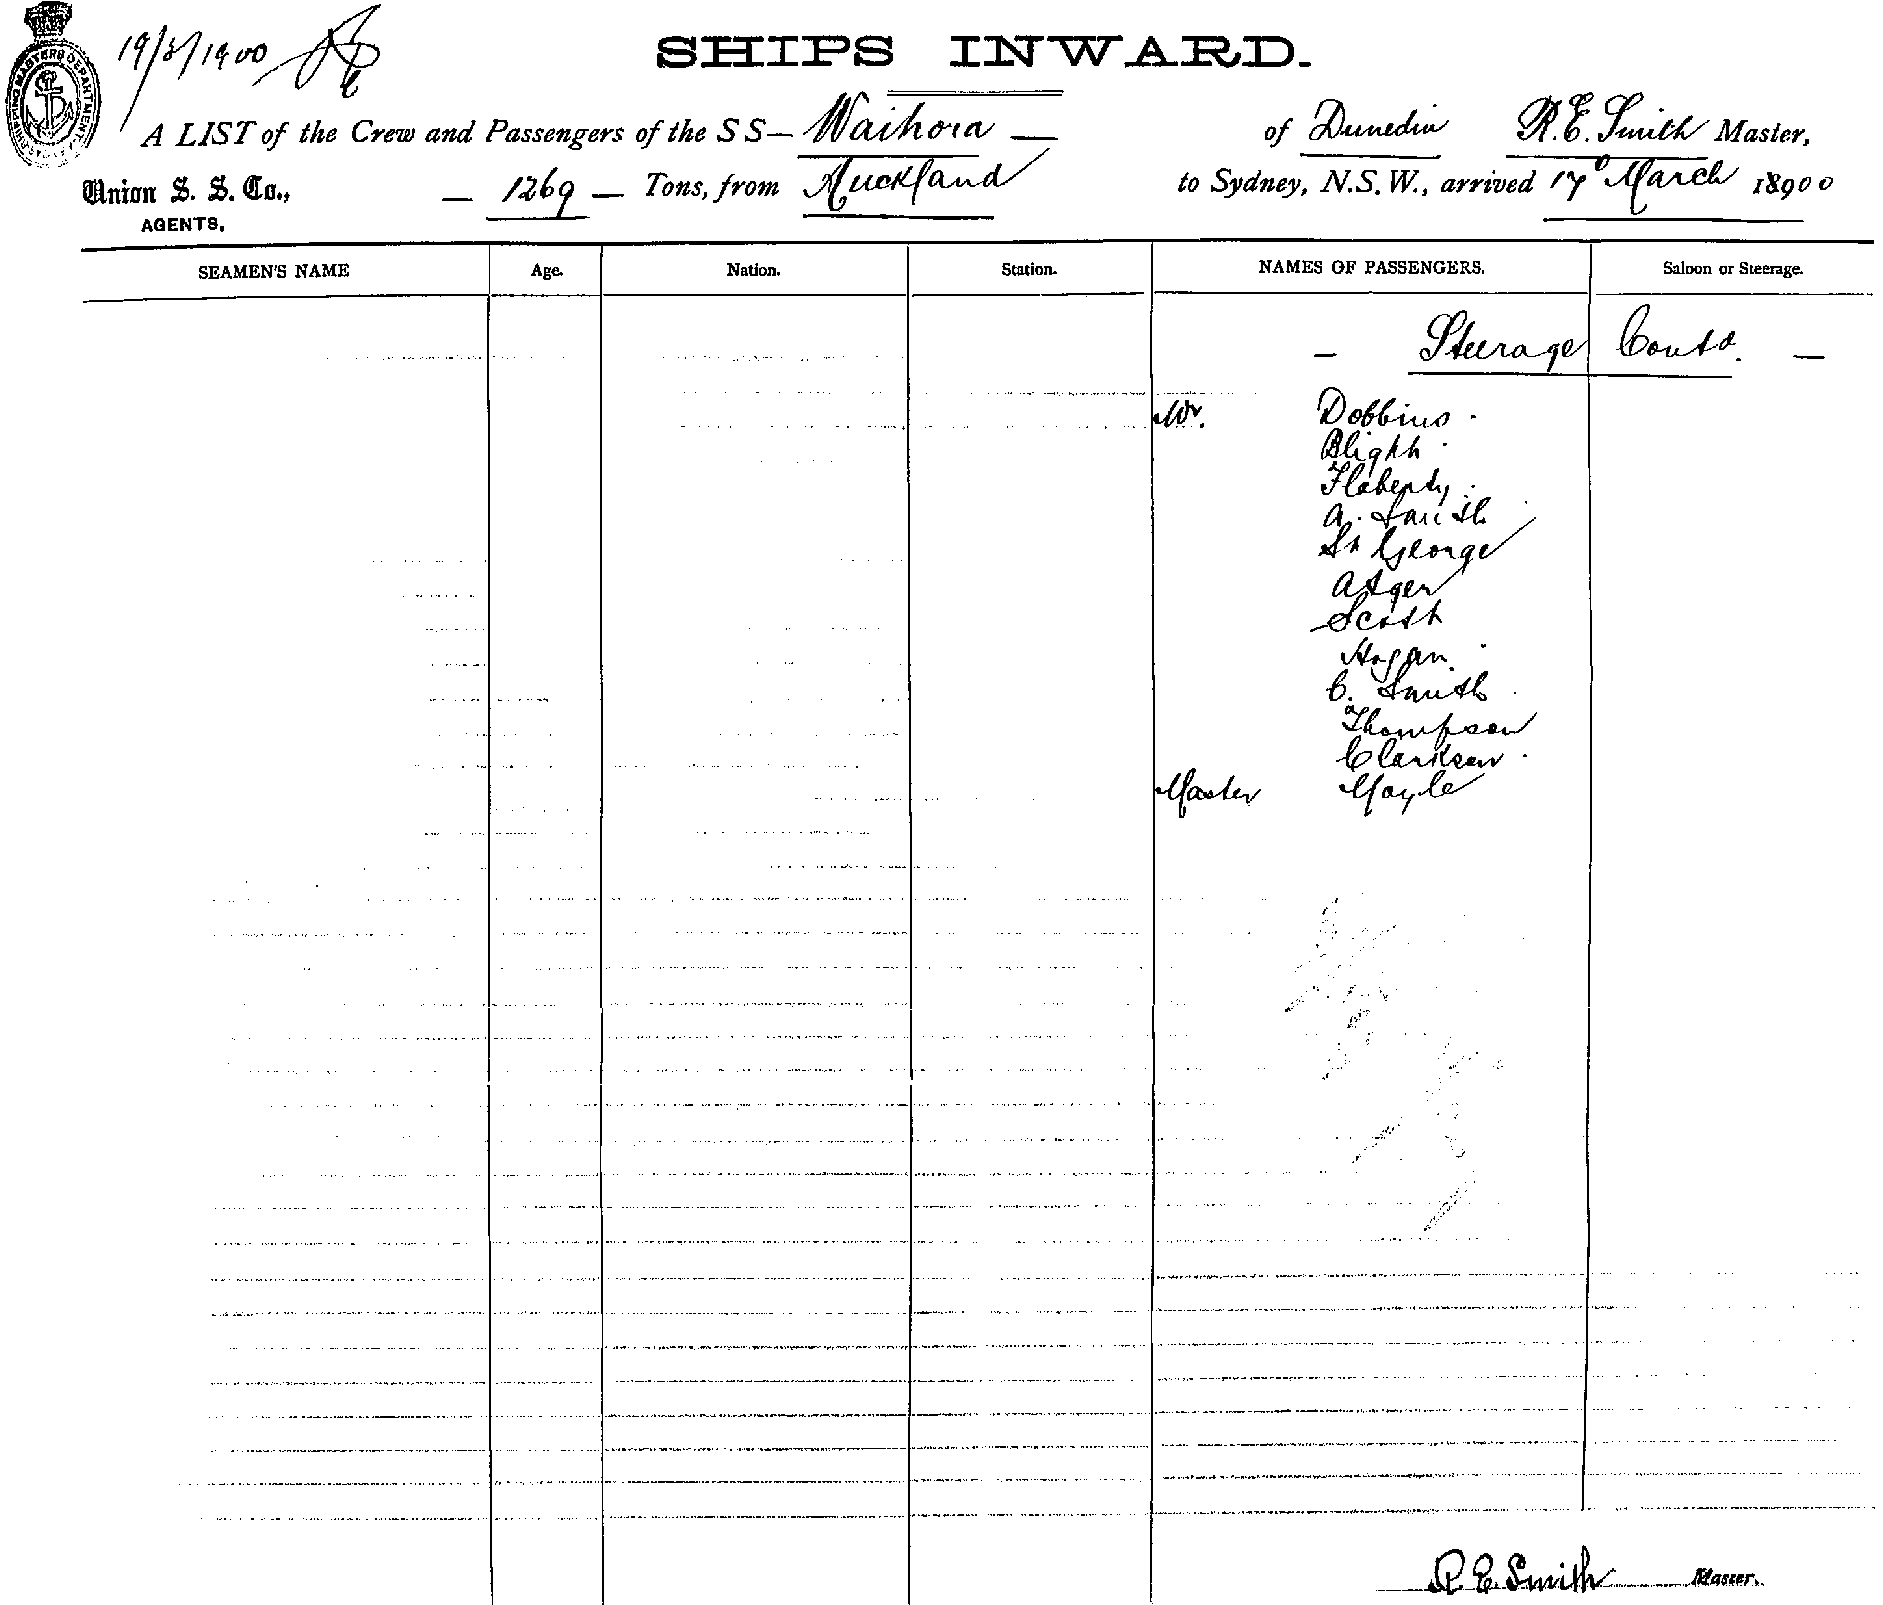 19/3/1900
SHIPS INWARD.
A LIST of the Crew and Passengers of the SS— Waihora — of Dunedin R. E. Smith Master,
Union S. S. Co., — 1269 — Tons, from Auckland to Sydney, N.S.W., arrived 17th March 18900
AGENTS,
SEAMEN'S NAME Age. Nation. Station. NAMES OF PASSENGERS. Saloon or Steerage.
— Steerage Contd. —
Mr. Dobbins
Blight
Flaherty
A. Smith
St George
Atger
Scott
Hogan
C. Smith
Thompson
Clarkson
Master Moyle
R. E. Smith Master.